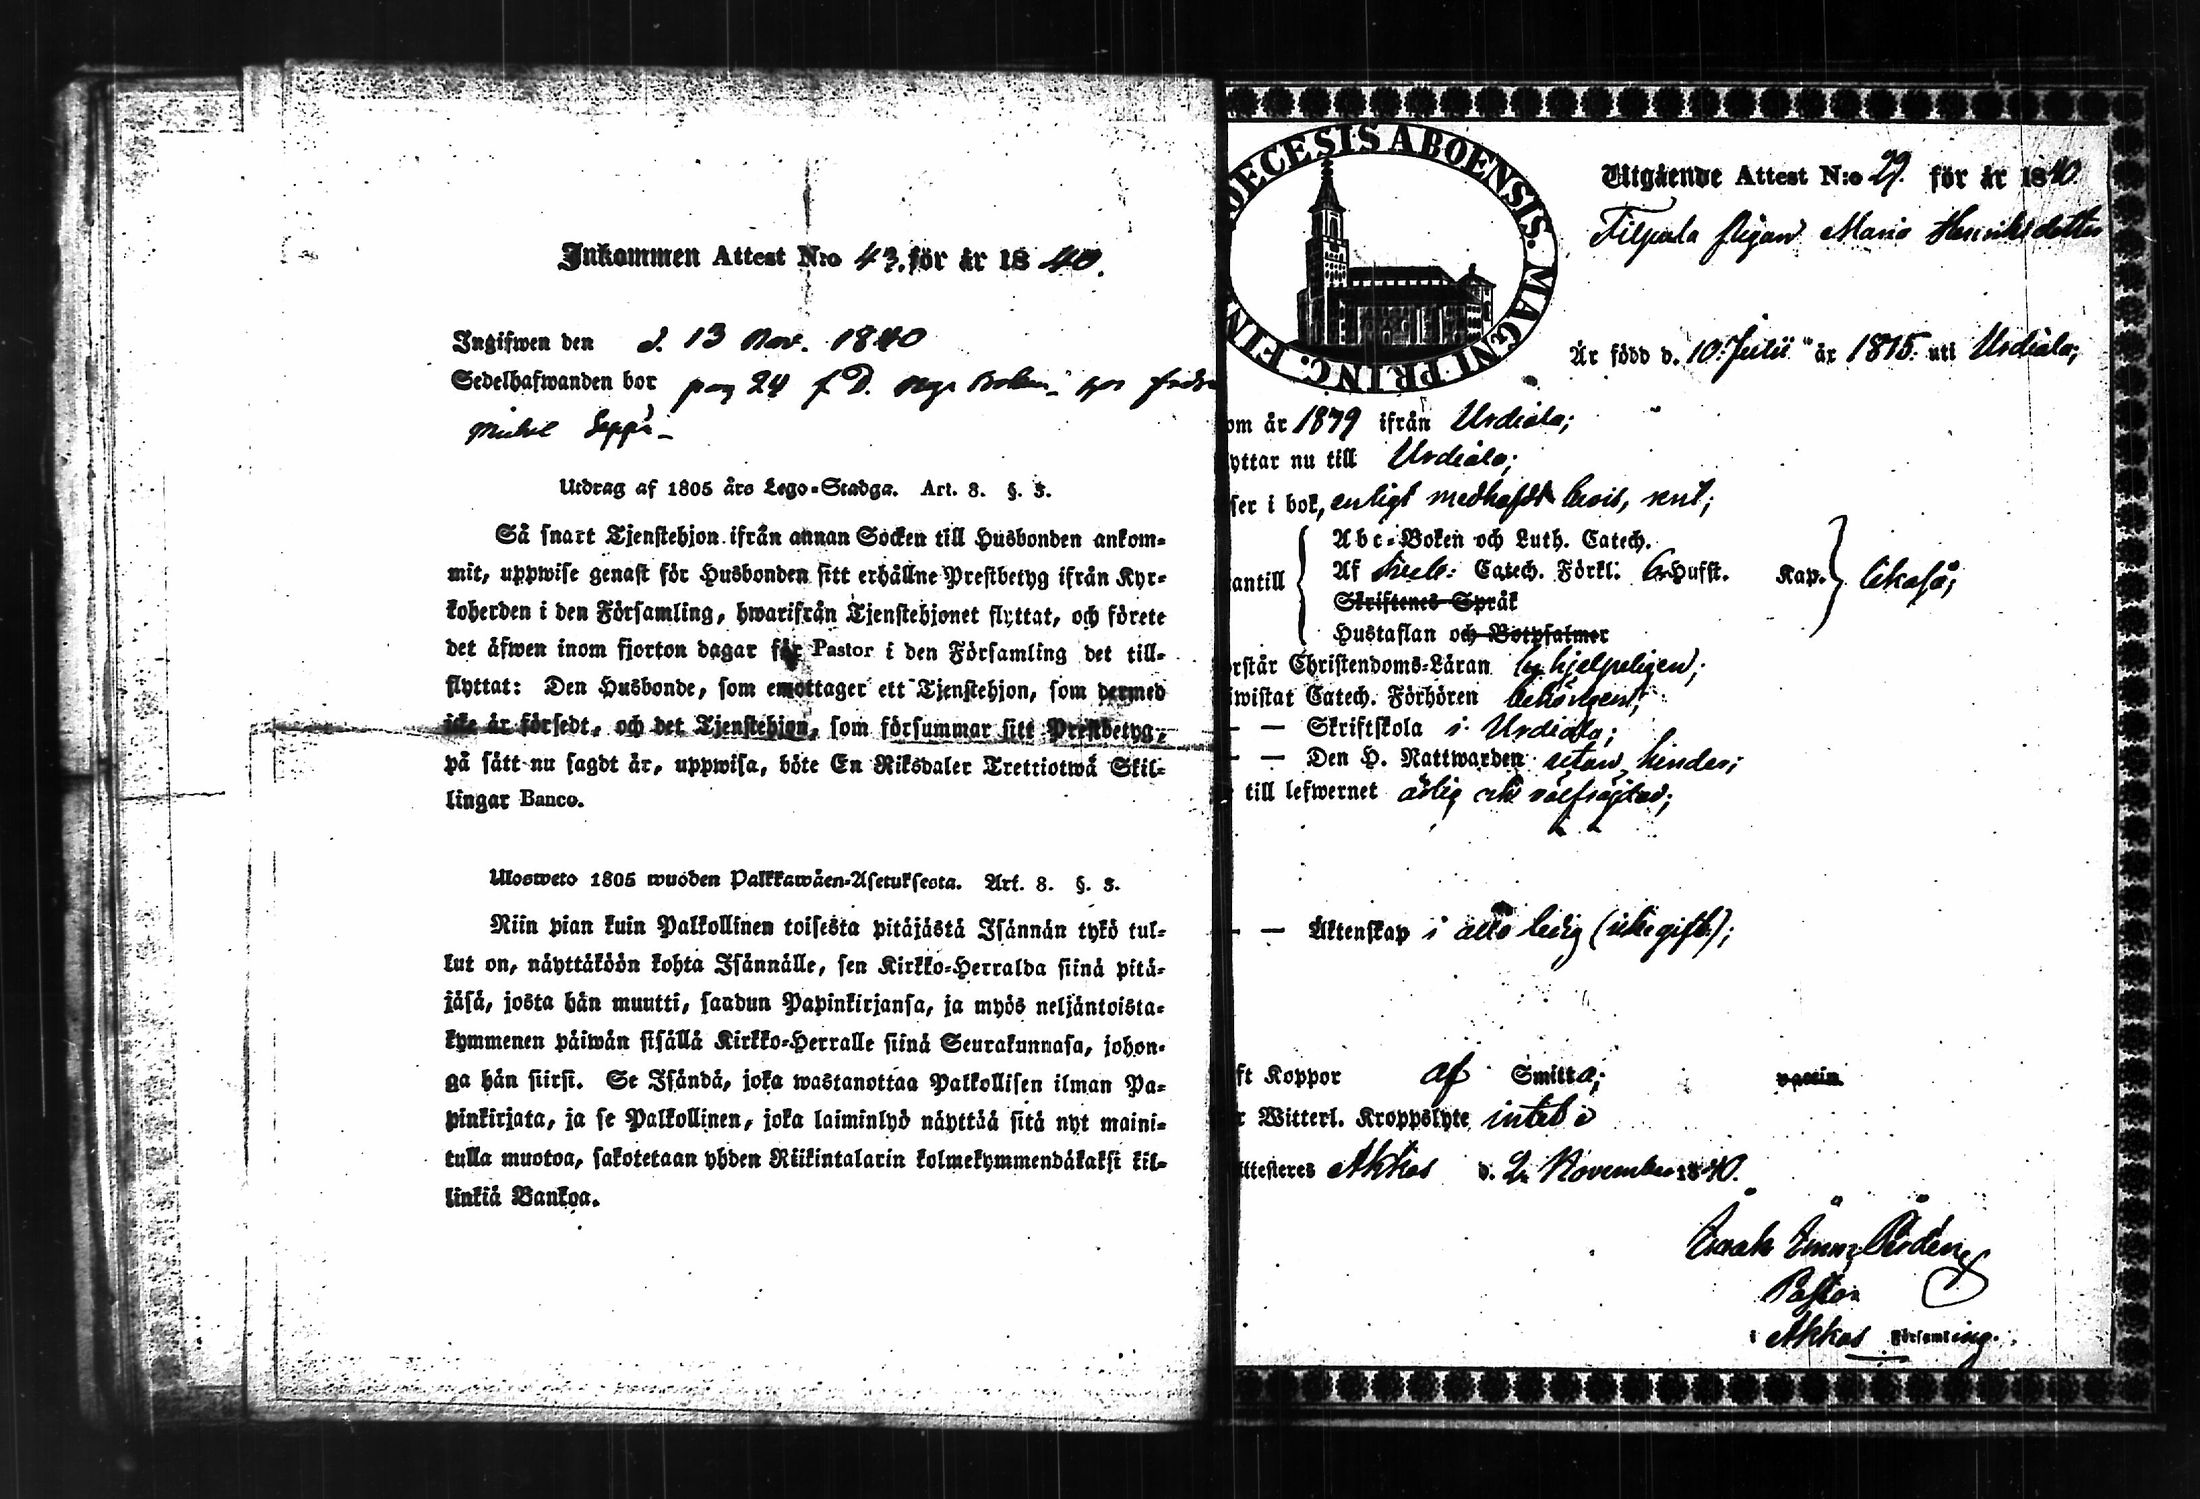 Inkommen Attest N:o 43. för år 1840.
Ingifwen den d. 13 Nov. 1840
Sedelhafwanden bor pag 24 f. D. hos
Michel Seppä
Utdrag af 1805 års Lego-Stadga. Art. 8. §. 3.
Så snart Tjenstehjon ifrån annan Socken till Husbonden ankom-
mit, uppwise genast för Husbonden sitt erhållne Prestbetyg ifrån Kyr-
koherden i den Församling, hwarifrån Tjenstehjonet flyttat, och förete
det äfwen inom fjorton dagar för Pastor i den Församling det till-
flyttat: Den Husbonde, som emottager ett Tjenstehjon, som dermed
icke är försedt, och det Tjenstehjon, som försummar sitt Prestbetyg,
på sätt nu sagdt är, uppwisa, böte En Riksdaler Trettiotwå Skil-
lingar Banco.
Ulosweto 1805 wuoden Palkkawäen-Asetuksesta. Art. 8. §. 3.
Niin pian kuin Palkollinen toisesta pitäjästä Isännän tykö tul-
lut on, näyttäköön kohta Isännälle, sen Kirkko-Herralda siinä pitä-
jäsä, josta hän muutti, saadun Papinkirjansa, ja myös neljäntoista-
kymmenen päiwän sisällä Kirkko-Herralle siinä Seurakunnasa, johon-
ga hän siirsi. Se Isändä, joka wastanottaa Palkollisen ilman Pa-
pinkirjata, ja se Palkollinen, joka laiminlyö näyttää sitä nyt maini-
tulla muotoa, sakotetaan yhden Riikintalarin kolmekymmendäkaksi kil-
linkiä Bankoa.
DECESIS ABOENSIS. MAGNI PRINC. FIN
Utgående Attest N:o 29. för år 1840.
Filpula pigan Maria Henriksdotter
Är född d. 10. Julii år 1815. uti Urdiala;
om år 1839 ifrån Urdiala;
yttar nu till Urdiala;
ser i bok, enligt medhafdt bevis, rent;
Abc-Boken och Luth. Catech.
antill Af Catech. Förkl. Hufst. Kap. likaså;
Skriftenes Språk
Hustaflan och Botpsalmer
rstår Christendoms-Läran hjelpeligen;
iwistat Catech. Förhören behörigen;
— — Skriftskola i Urdiala;
— — Den H. Nattwarden utan hinder;
till lefwernet ärlig och välfräjdad;
— — Äktenskap i ledig (icke gift);
ft Koppor af Smitta; vaccin.
r Witterl. Kroppslyte intet
ttesteres Akkas d. 2. November 1840.
Isaak Emm.
Pastor
i Akkas Församling.